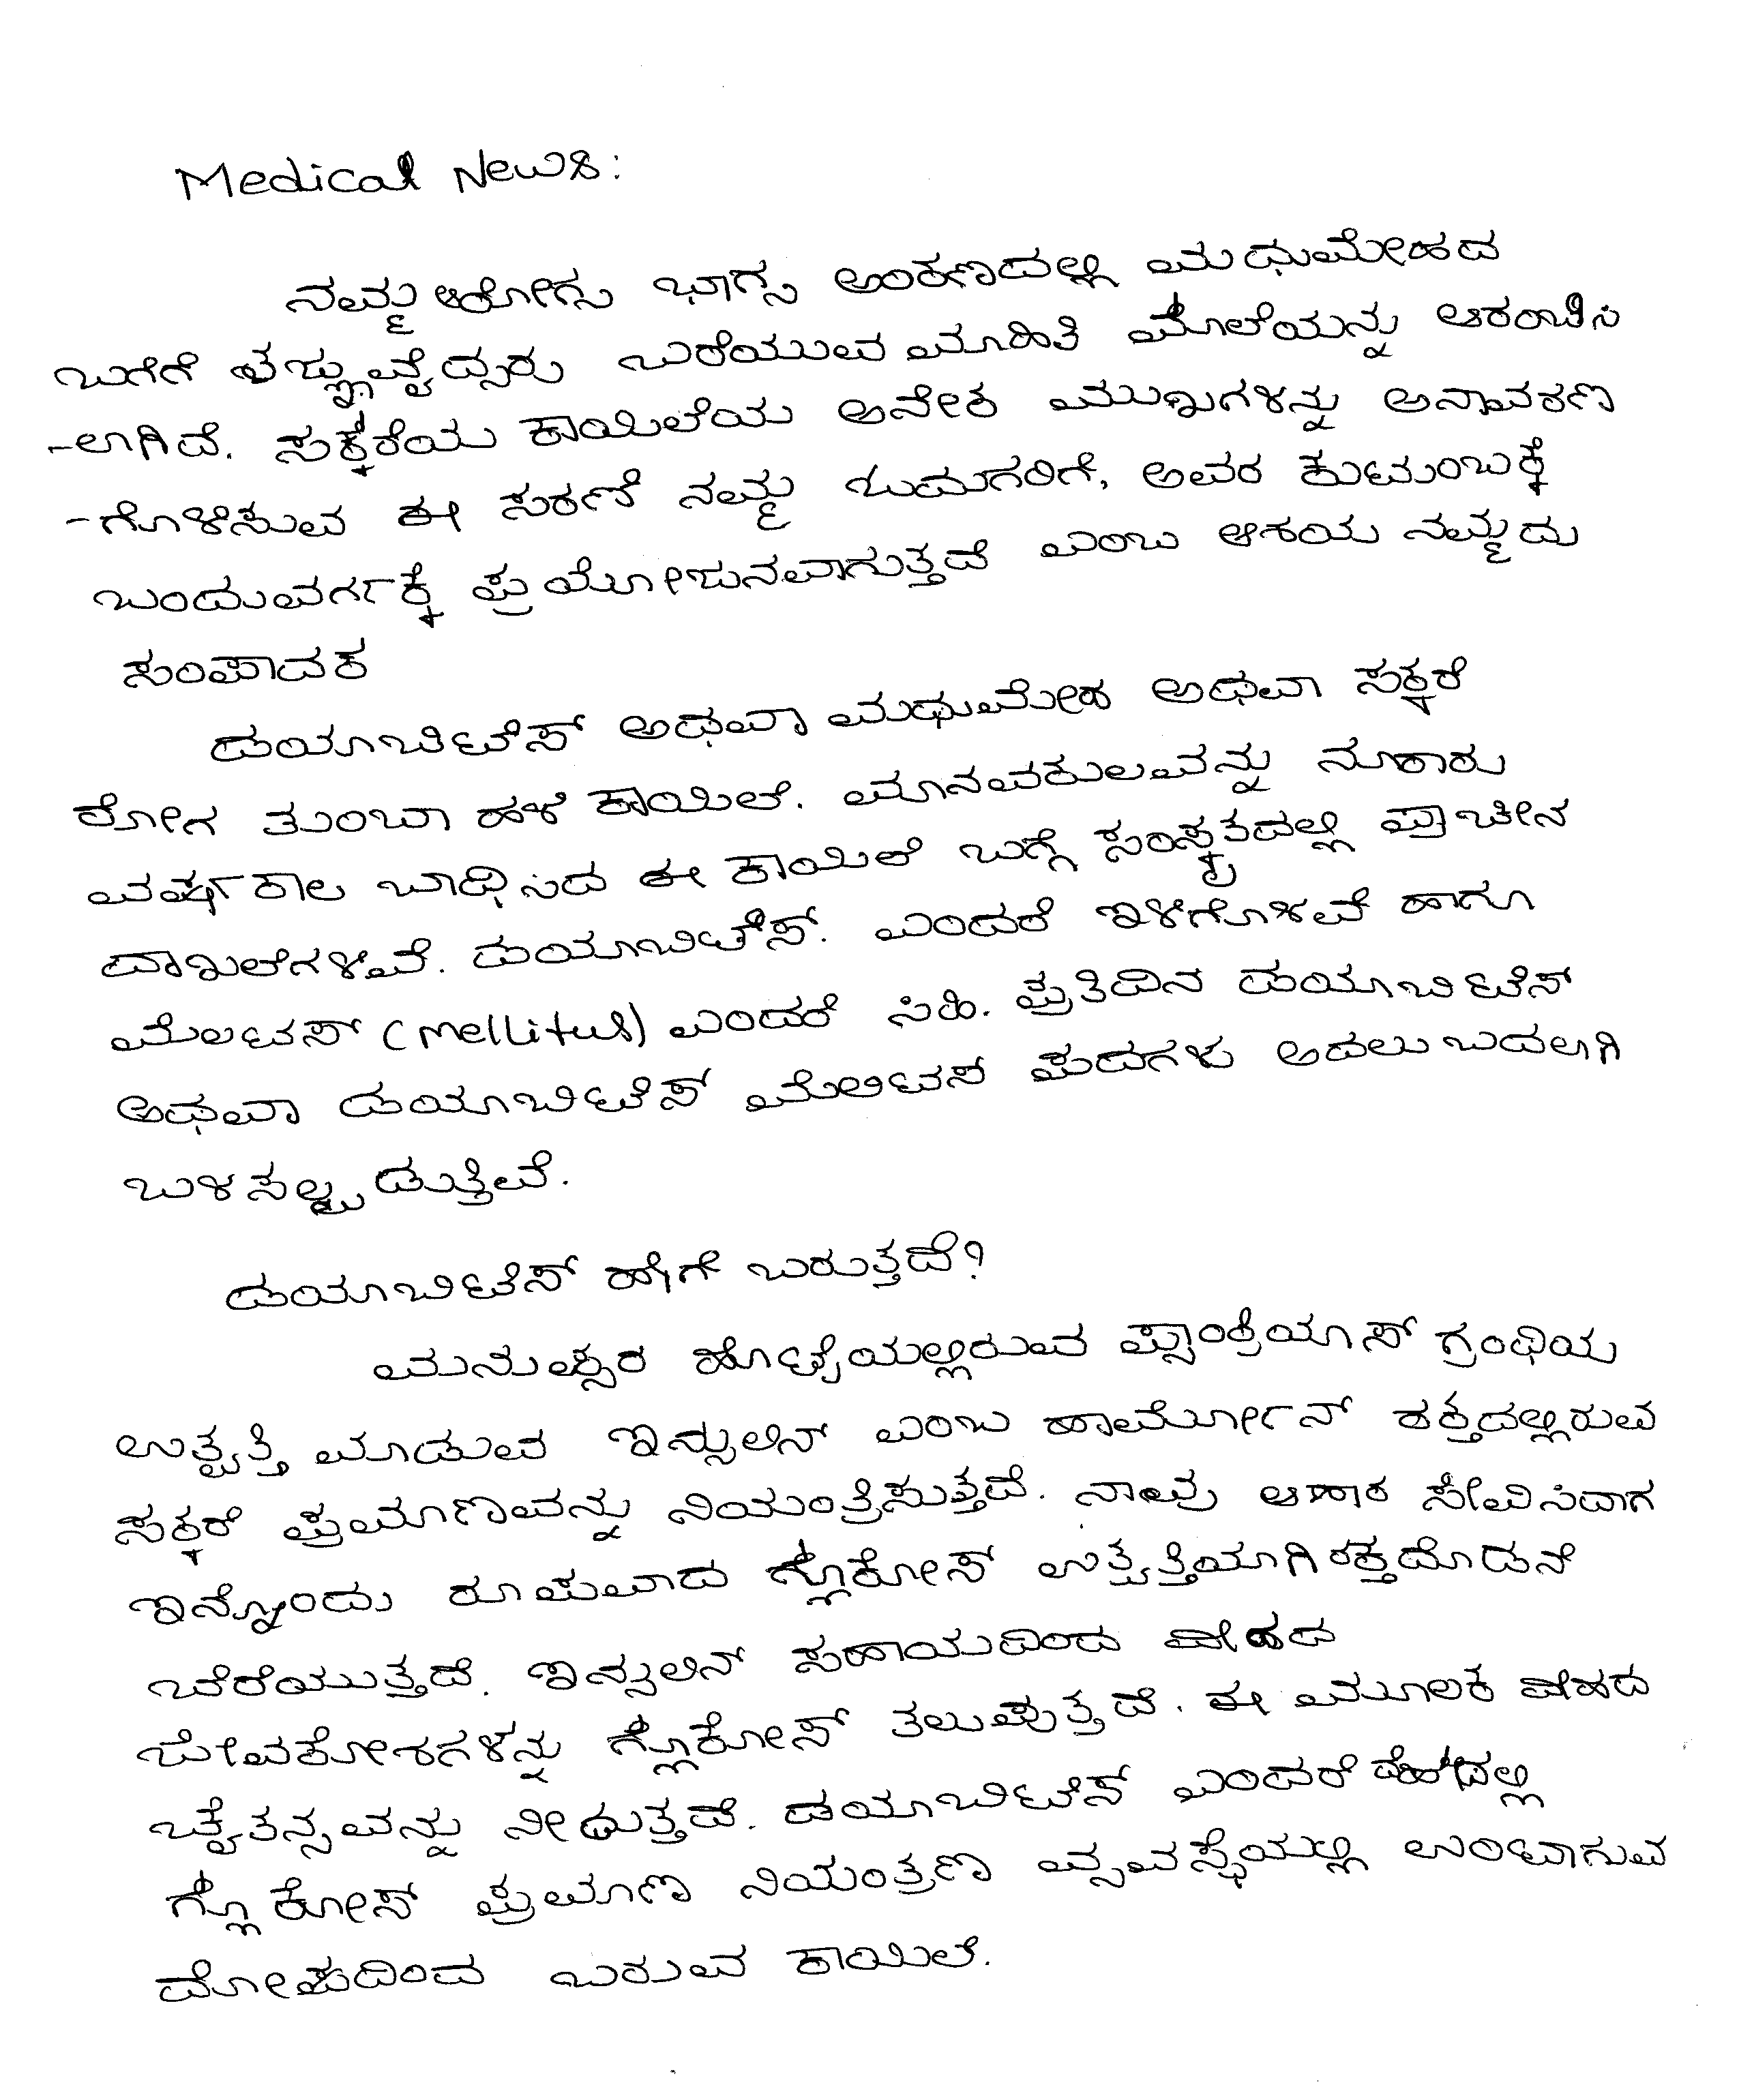 Medical News:
ನಮ್ಮ ಆರೋಗ್ಯ ಭಾಗ್ಯ ಅಂಕಣದಲ್ಲಿ ಮಧುಮೇಹದ
ಬಗೆಗೆ ತಜ್ಞವೈದ್ಯರು ಬರೆಯುವ ಮಾಹಿತಿ ಮಾಲೆಯನ್ನು ಆರಂಭಿಸ
-ಲಾಗಿದೆ. ಸಕ್ಕರೆಯ ಕಾಯಿಲೆಯ ಅನೇಕ ಮುಖಗಳನ್ನು ಅನಾವರಣ
-ಗೊಳಿಸುವ ಈ ಸರಣಿ ನಮ್ಮ ಓದುಗರಿಗೆ, ಅವರ ಕುಟುಂಬಕ್ಕೆ
ಬಂದುವರ್ಗಕ್ಕೆ ಪ್ರಯೋಜನವಾಗುತ್ತದೆ ಎಂಬ ಆಶಯ ನಮ್ಮದು
ಸಂಪಾದಕ
ಡಯಾಬಿಟೆಸ್ ಅಥವಾ ಮಧುಮೇಹ ಅಥವಾ ಸಕ್ಕರೆ
ರೋಗ ತುಂಬಾ ಹಳೆ ಕಾಯಿಲೆ. ಮಾನವಕುಲವನ್ನು ನೂರಾರು
ವರ್ಷಕಾಲ ಬಾಧಿಸಿದ ಈ ಕಾಯಿಲೆ ಬಗ್ಗೆ ಸಂಸ್ಕೃತದಲ್ಲಿ ಪ್ರಾಚೀನ
ದಾಖಲೆಗಳಿವೆ. ಡಯಾಬಿಟೆಸ್. ಎಂದರೆ ಇಳಿಗೊಳವೆ ಹಾಗೂ
ಮೆಲಟಸ್ (mellitus) ಎಂದರೆ ಸಿಹಿ. ಪ್ರತಿದಿನ ಡಯಾಬಿಟೆಸ್
ಅಥವಾ ಡಯಾಬಿಟೆಸ್ ಮೆಲಿಟಸ ಪದಗಳು ಅದಲು ಬದಲಾಗಿ
ಬಳಸಲ್ಪಡುತ್ತಿವೆ.
ಡಯಾಬಿಟೆಸ್ ಹೇಗೆ ಬರುತ್ತದೆ?
ಮನುಷ್ಯರ ಹೊಟ್ಟೆಯಲ್ಲಿರುವ ಪ್ಯಾಂಕ್ರಿಯಾಸ್ ಗ್ರಂಥಿಯ
ಉತ್ಪತ್ತಿ ಮಾಡುವ ಇನ್ಸುಲಿನ್ ಎಂಬ ಹಾರ್ಮೋನ್ ರಕ್ತದಲ್ಲಿರುವ
ಸಕ್ಕರೆ ಪ್ರಮಾಣವನ್ನು ನಿಯಂತ್ರಿಸುತ್ತದೆ. ನಾವು ಆಹಾರ ಸೇವಿಸಿದಾಗ
ಇನ್ನೊಂದು ರೂಪವಾದ ಗ್ಲೂಕೋಸ್ ಉತ್ಪತ್ತಿಯಾಗಿ ರಕ್ತದೊಡನೆ
ಬೆರೆಯುತ್ತದೆ. ಇನ್ಸಲಿನ್ ಸಹಾಯದಿಂದ ದೇಹದ
ಜೀವಕೋಶಗಳನ್ನು ಗ್ಲೂಕೋಸ್ ತಲುಪುತ್ತದೆ. ಈ ಮೂಲಕ ದೇಹದ
ಚೈತನ್ಯವನ್ನು ನೀಡುತ್ತದೆ. ಡಯಾಬಿಟೆಸ್ ಎಂದರೆ ದೇಹದಲ್ಲಿ
ಗ್ಲೂಕೋಸ್ ಪ್ರಮಾಣ ನಿಯಂತ್ರಣ ವ್ಯವಸ್ಥೆಯಲ್ಲಿ ಉಂಟಾಗುವ
ದೋಷದಿಂದ ಬರುವ ಕಾಯಿಲೆ.